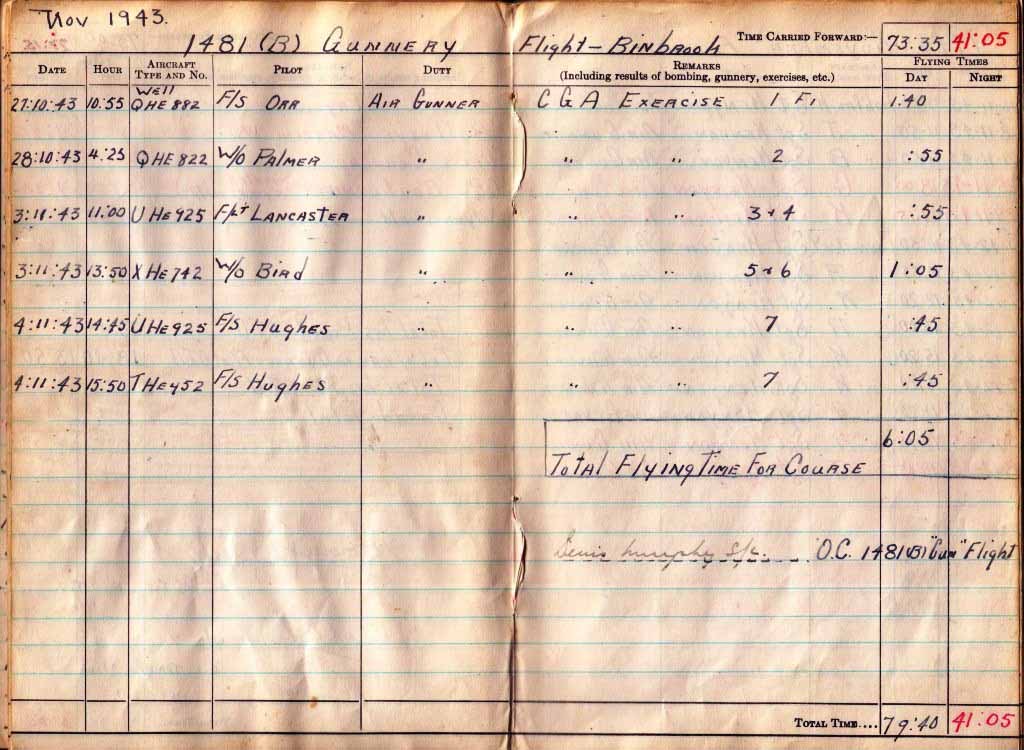 Nov 1943.
1481 (B) Gunnery Flight - Binbrook TIME CARRIED FORWARD:— 73:35 41:05
DATE HOUR AIRCRAFT TYPE AND No. PILOT DUTY REMARKS (Including results of bombing, gunnery, exercises, etc.) FLYING TIMES DAY NIGHT
Well
27:10:43 10:55 QHE 882 F/S ORR AIR GUNNER C G A EXERCISE 1 F1 1:40
28:10:43 4:25 QHE 822 W/O PALMER " " " 2 :55
3:11:43 11:00 U HE 925 F/Lt LANCASTER " " " 3+4 :55
3:11:43 13:50 X HE 742 W/O Bird " " " 5+6 1:05
4:11:43 14:45 U HE 925 F/S Hughes " " " 7 :45
4:11:43 15:50 T HE 452 F/S Hughes " " " 7 :45
6:05
Total Flying Time For Course
Denis Murphy S/L. O.C. 1481(B) "Gun" Flight
TOTAL TIME.... 79:40 41:05